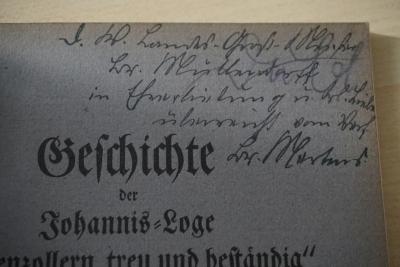 D. W. Landes-Groß-Meister
Br. Müllendorff
in Ehrerbietung u. br. Liebe
überreicht vom Verf.
Br. Martens.
Geschichte
der
Johannis-Loge
enzollern, treu und beständig"